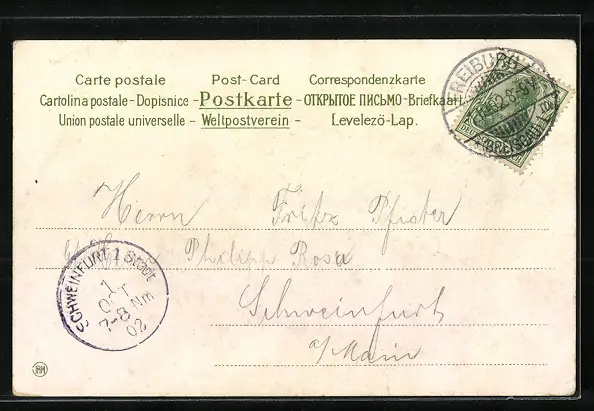 Carte postale Post-Card Correspondenzkarte
Cartolina postale - Dopisnice - Postkarte - ОТКРЫТОЕ ПИСЬМО - Briefkaart
Union postale universelle - Weltpostverein - Levelező-Lap.
FREIBURG
(BREISGAU) 1
Herrn Fritz Pfister
Philipp Rosa
Schweinfurt
a/Main
SCHWEINFURT 1 Stadt
1
OCT
7-8 Nm
02
RM